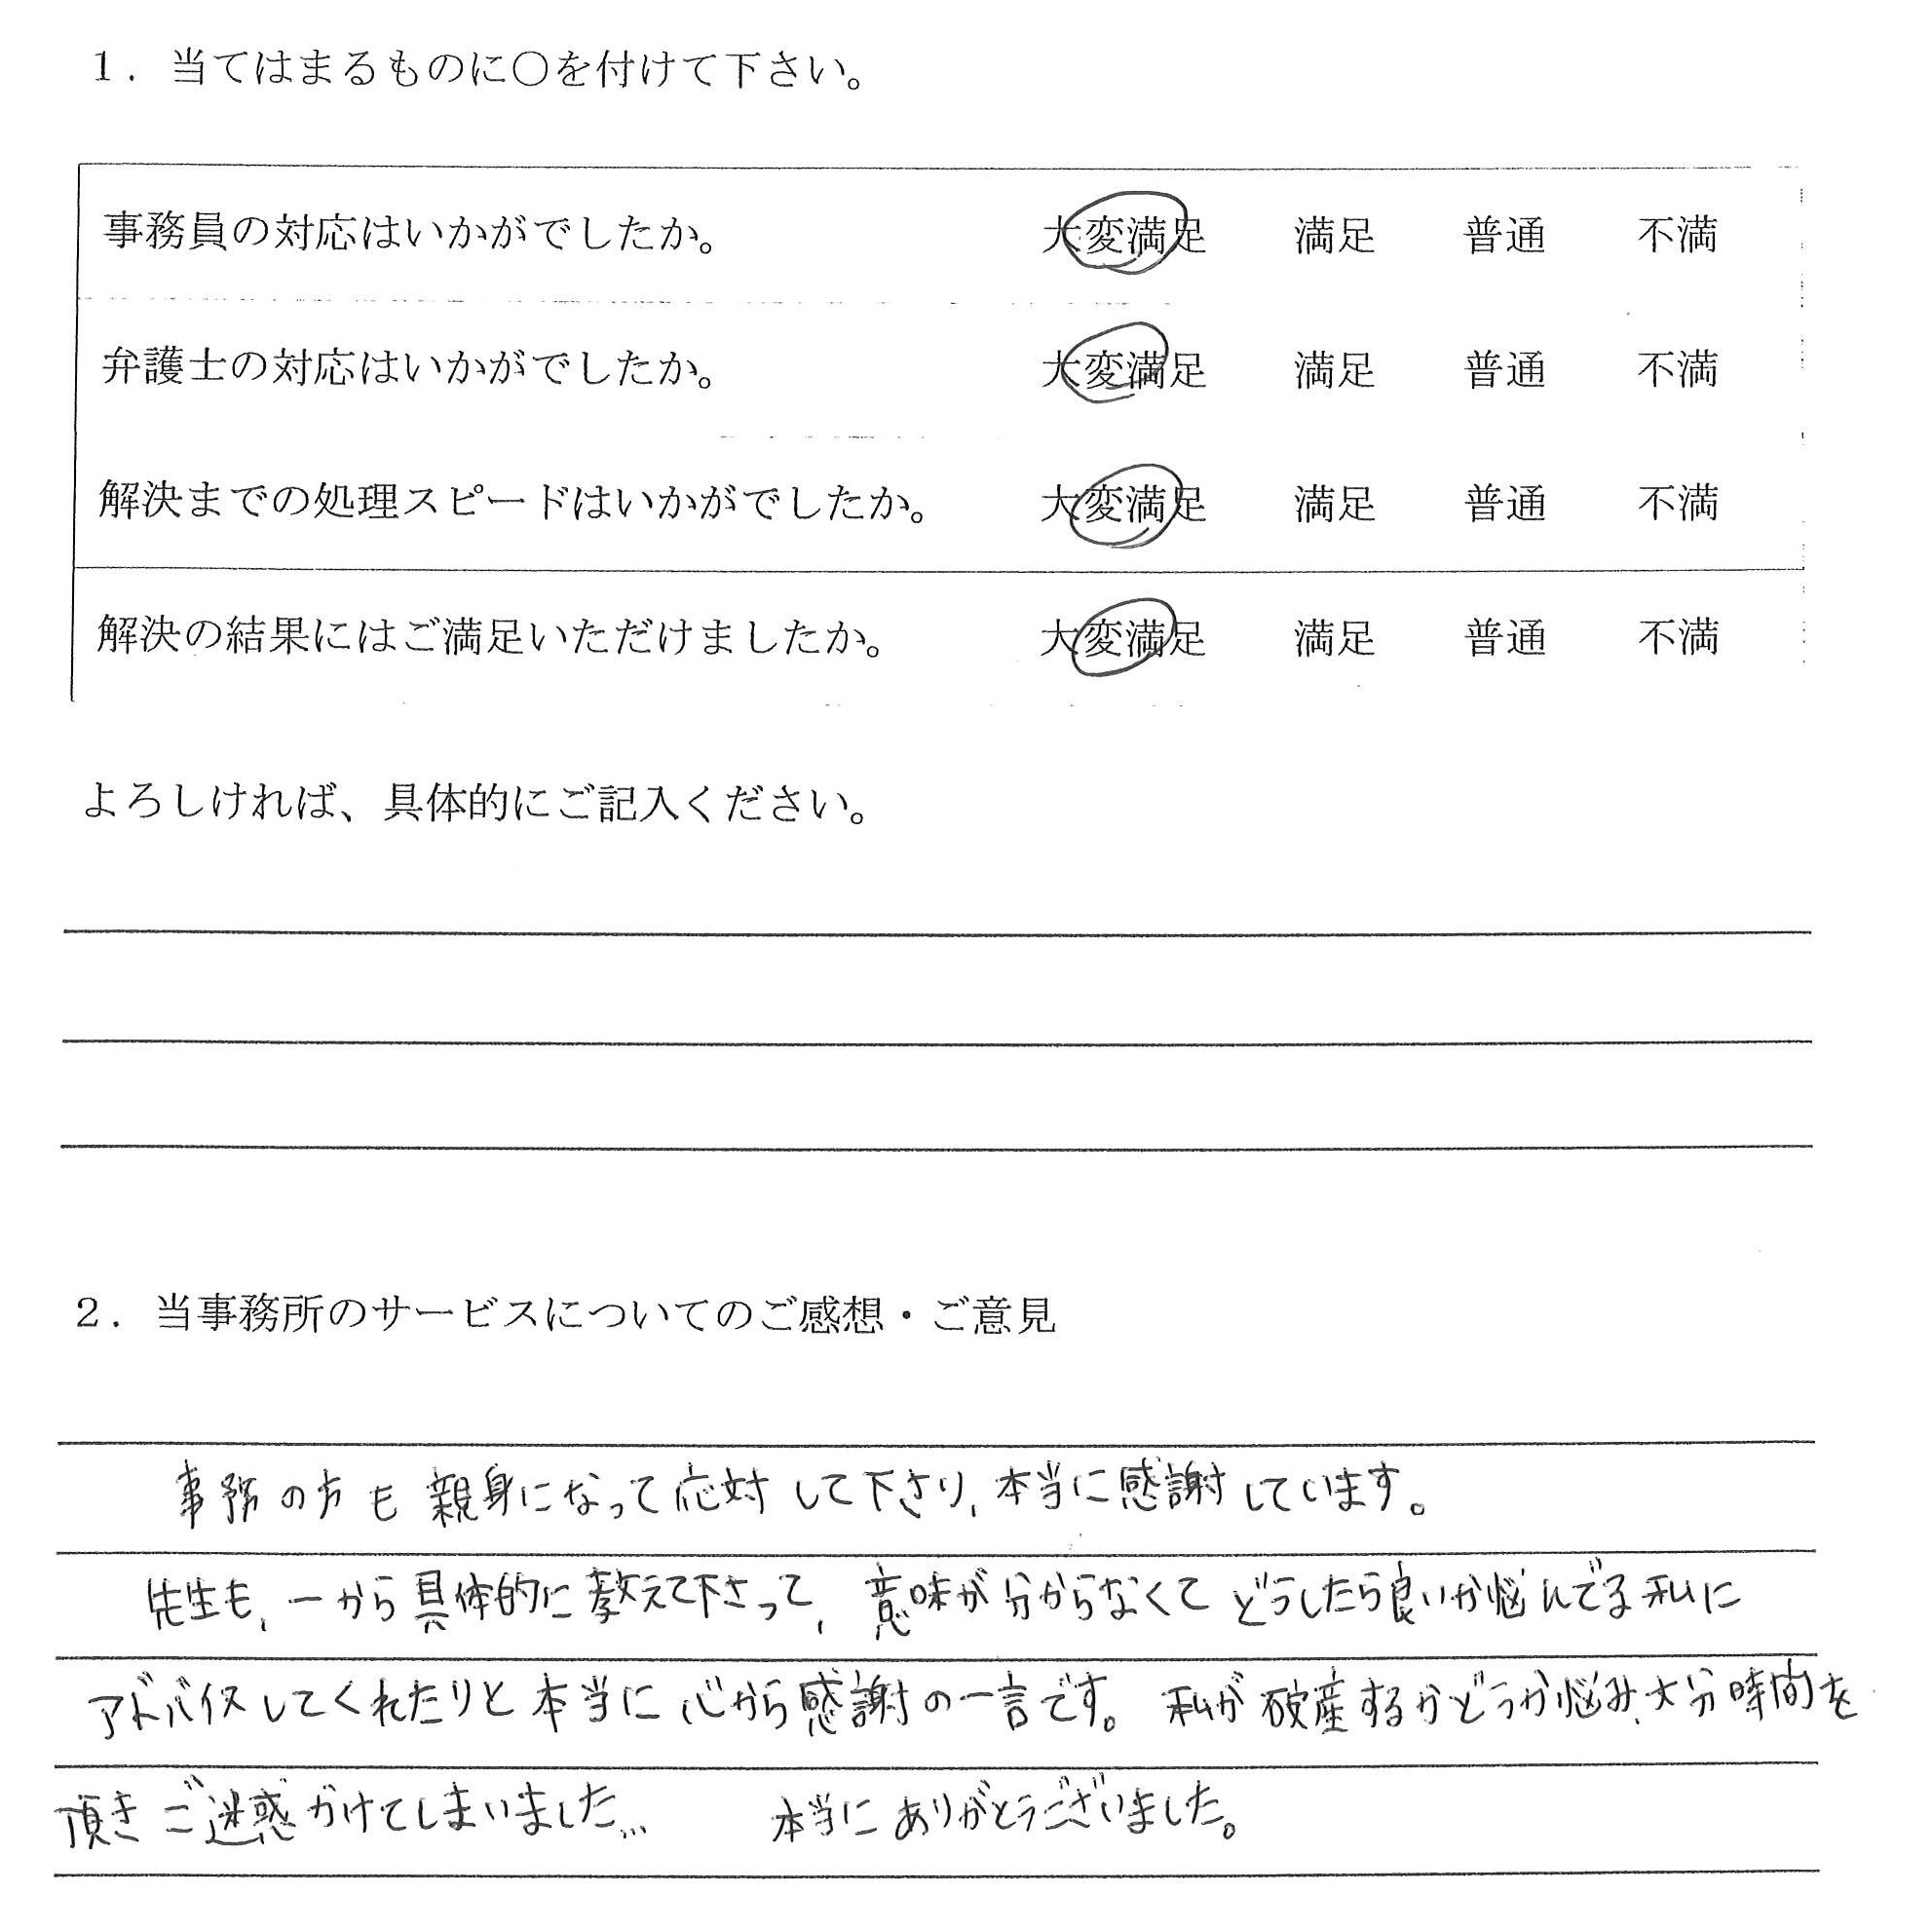 １．当てはまるものに〇を付けて下さい。
事務員の対応はいかがでしたか。 大変満足 満足 普通 不満
弁護士の対応はいかがでしたか。 大変満足 満足 普通 不満
解決までの処理スピードはいかがでしたか。 大変満足 満足 普通 不満
解決の結果にはご満足いただけましたか。 大変満足 満足 普通 不満
よろしければ、具体的にご記入ください。
２．当事務所のサービスについてのご感想・ご意見
事務の方も親身になって応対して下さり、本当に感謝しています。
先生も、一から具体的に教えて下さって、意味が分からなくてどうしたら良いか悩んでる私に
アドバイスしてくれたりと本当に心から感謝の一言です。私が破産するかどうか悩み、大分時間を
頂きご迷惑かけてしまいました… 本当にありがとうございました。